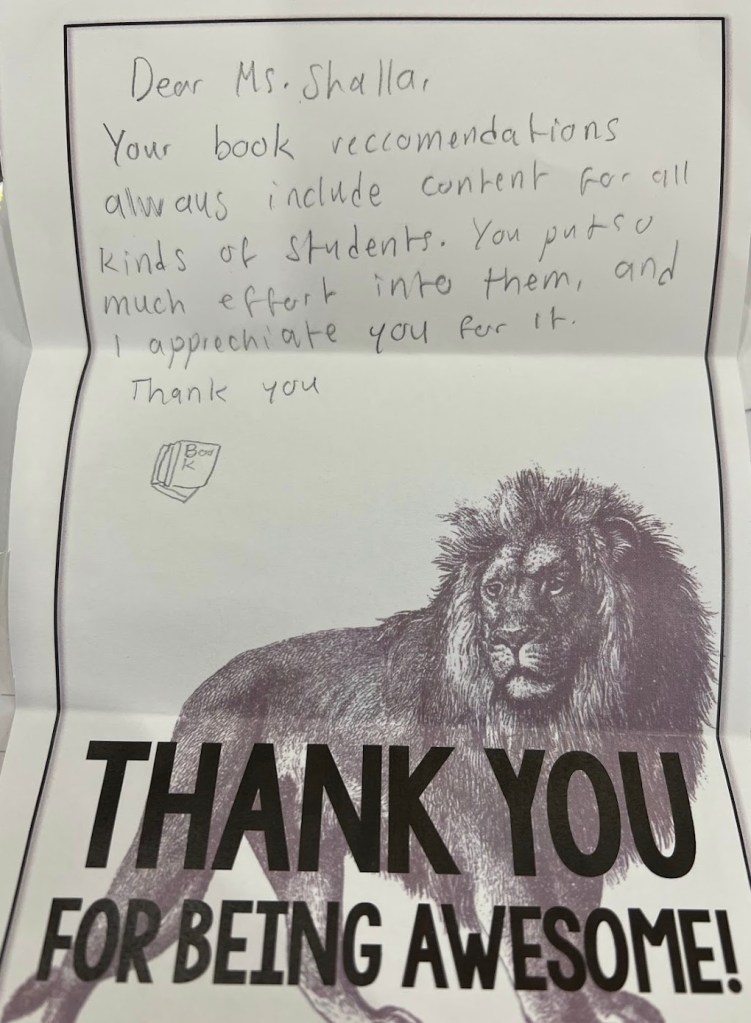 Dear Ms. Shalla,
Your book reccomendations
always include content for all
kinds of students. You put so
much effort into them, and
I apprechiate you for it.
Thank you
Boo
k
THANK YOU
FOR BEING AWESOME!